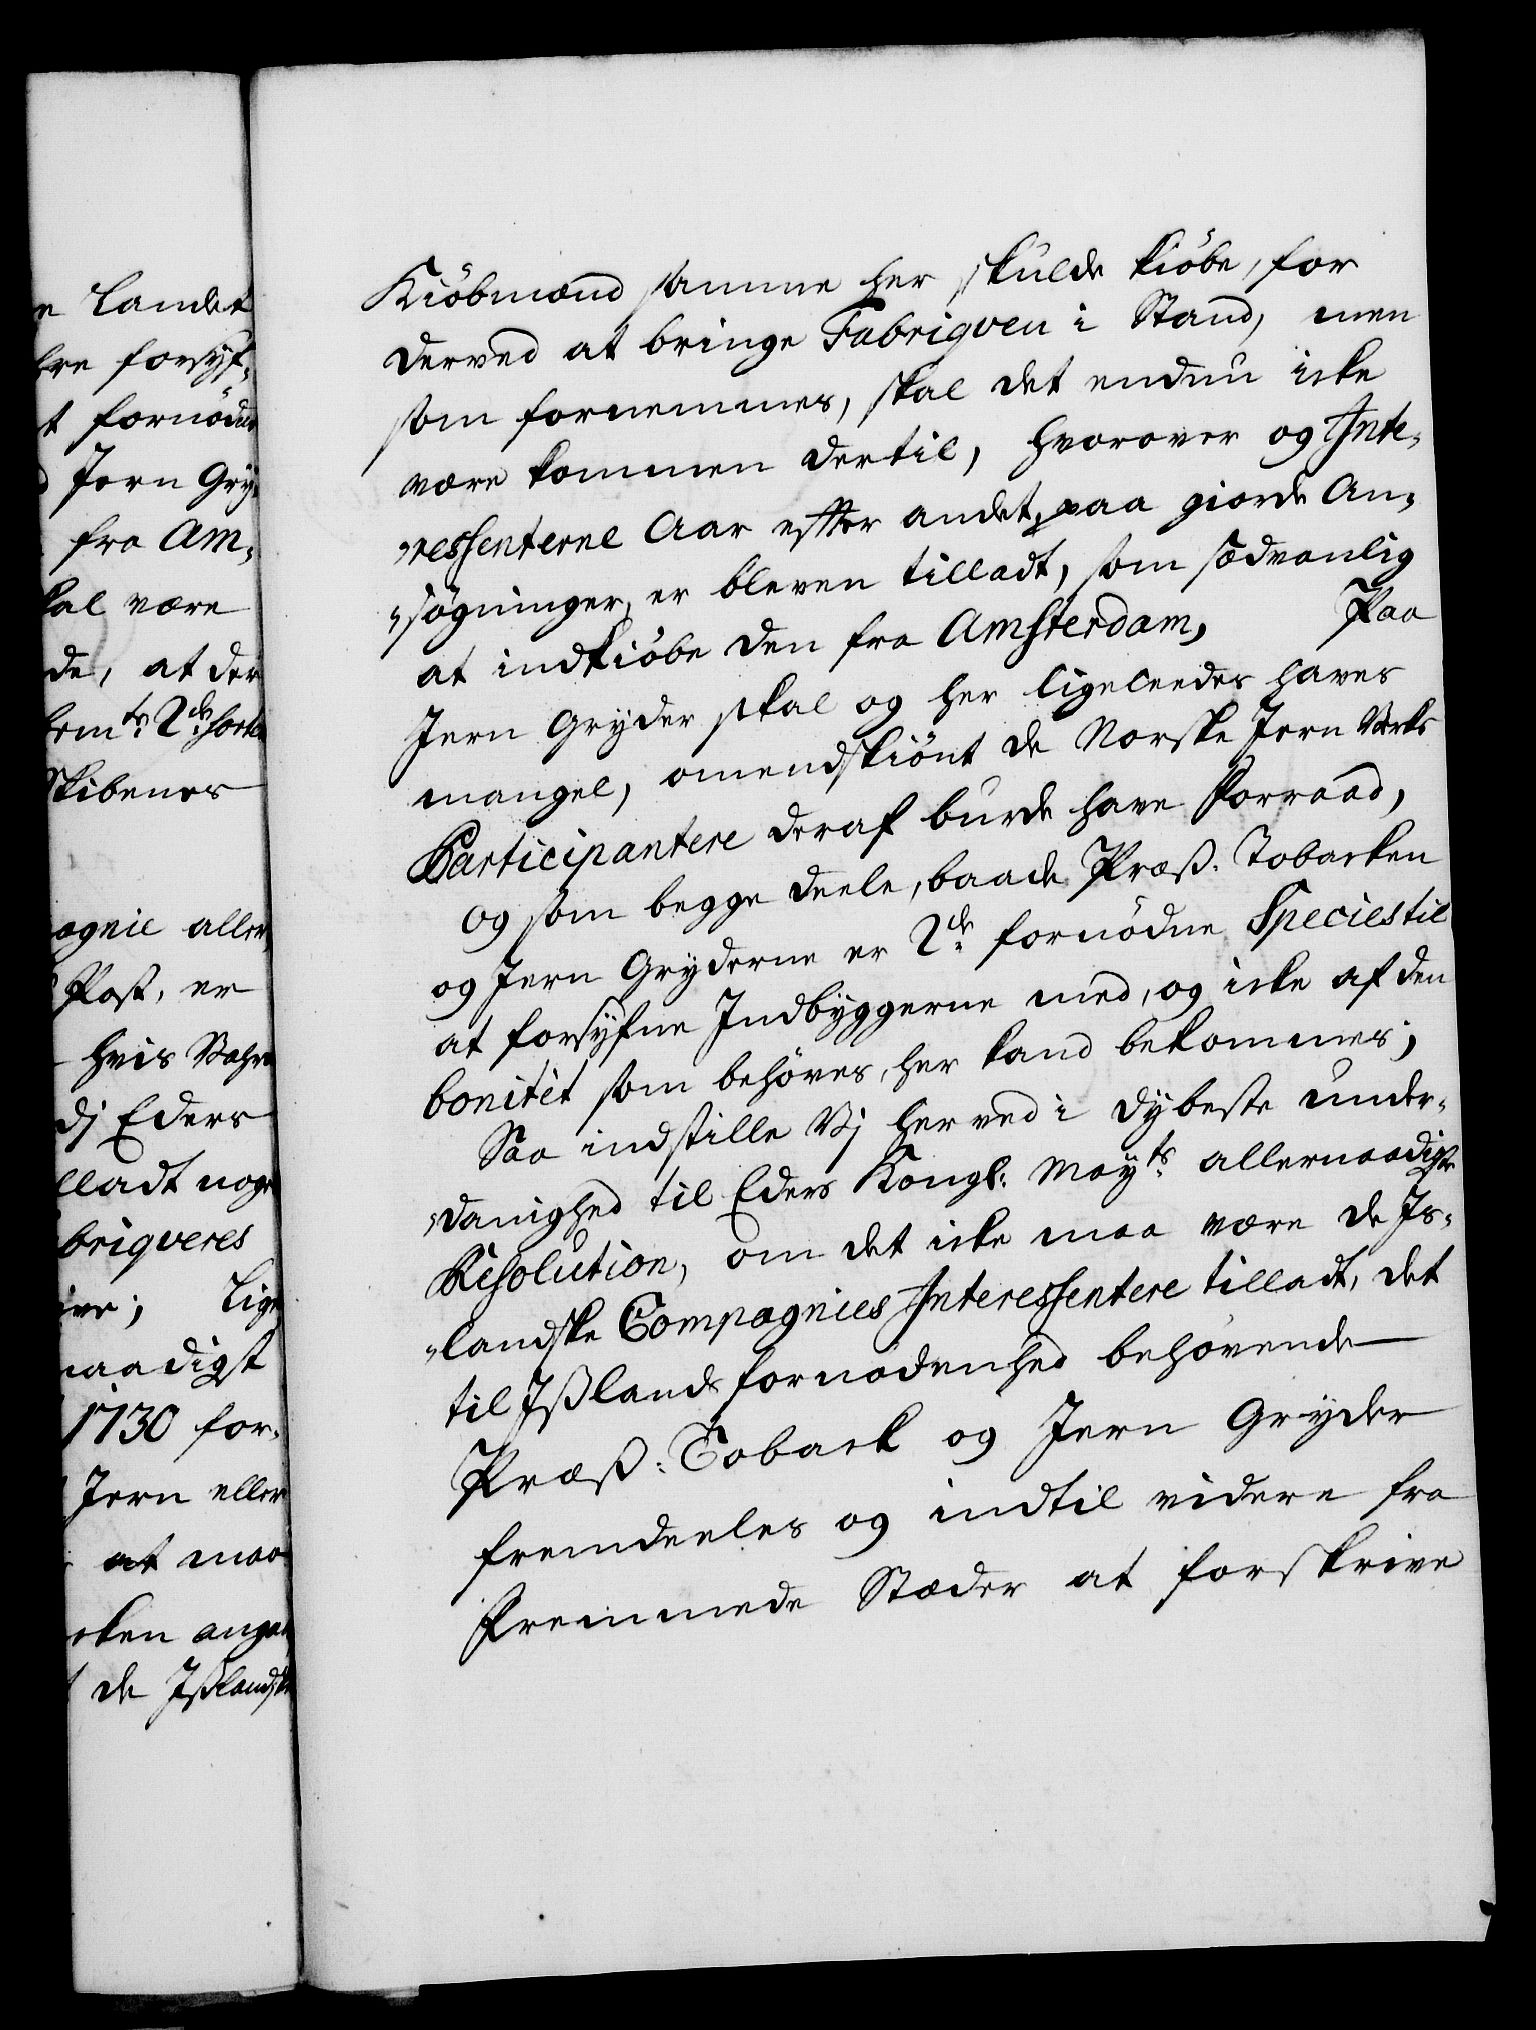 e Landet
dre forsyf-
t fornødne
Jern Gry-
fra Am-
kal være
de, at der
2de sorter
Skibenes
agnie aller-
Post, er
hvis Vahre
dj Eders
lladt noge
briqveres
ive; Lige
naadigst
1730 for-
Jern eller
at maa
cken anga
de Jßlandske
Kiöbmænd samme her skulde kiöbe, for
derved at bringe Fabriqven i Stand, men
som fornemmes, skal det endnu icke
være kommen dertil, hvorover og Inte-
ressenterne Aar efter andet, paa giorde An-
søgninger, er bleven tilladt, som sædvanlig
at indkiöbe den fra Amsterdam, Paa
Jern Gryder skal og her ligeleedes haves
mangel, omendskiönt de Norske Jern Verks
Participantere deraf burde have Forraad,
og som begge deele, baade Præß. Tobacken
og Jern Gryderne er 2de fornødne Species til
at forsyfne Indbyggerne med, og icke af den
bonitet som behöves, her kand bekommes;
Saa indstille Vj herved i dybeste under-
danighed til Eders Kongl: Mayts allernaadigste
Resolution, om det icke maa være de Js-
landske Compagnies Interessentere tilladt, det
til Jßlands fornødenhed behövende
Præß: Toback og Jern Gryder
fremdeeles og indtil videre fra
Fremmede Stæder at forskrive